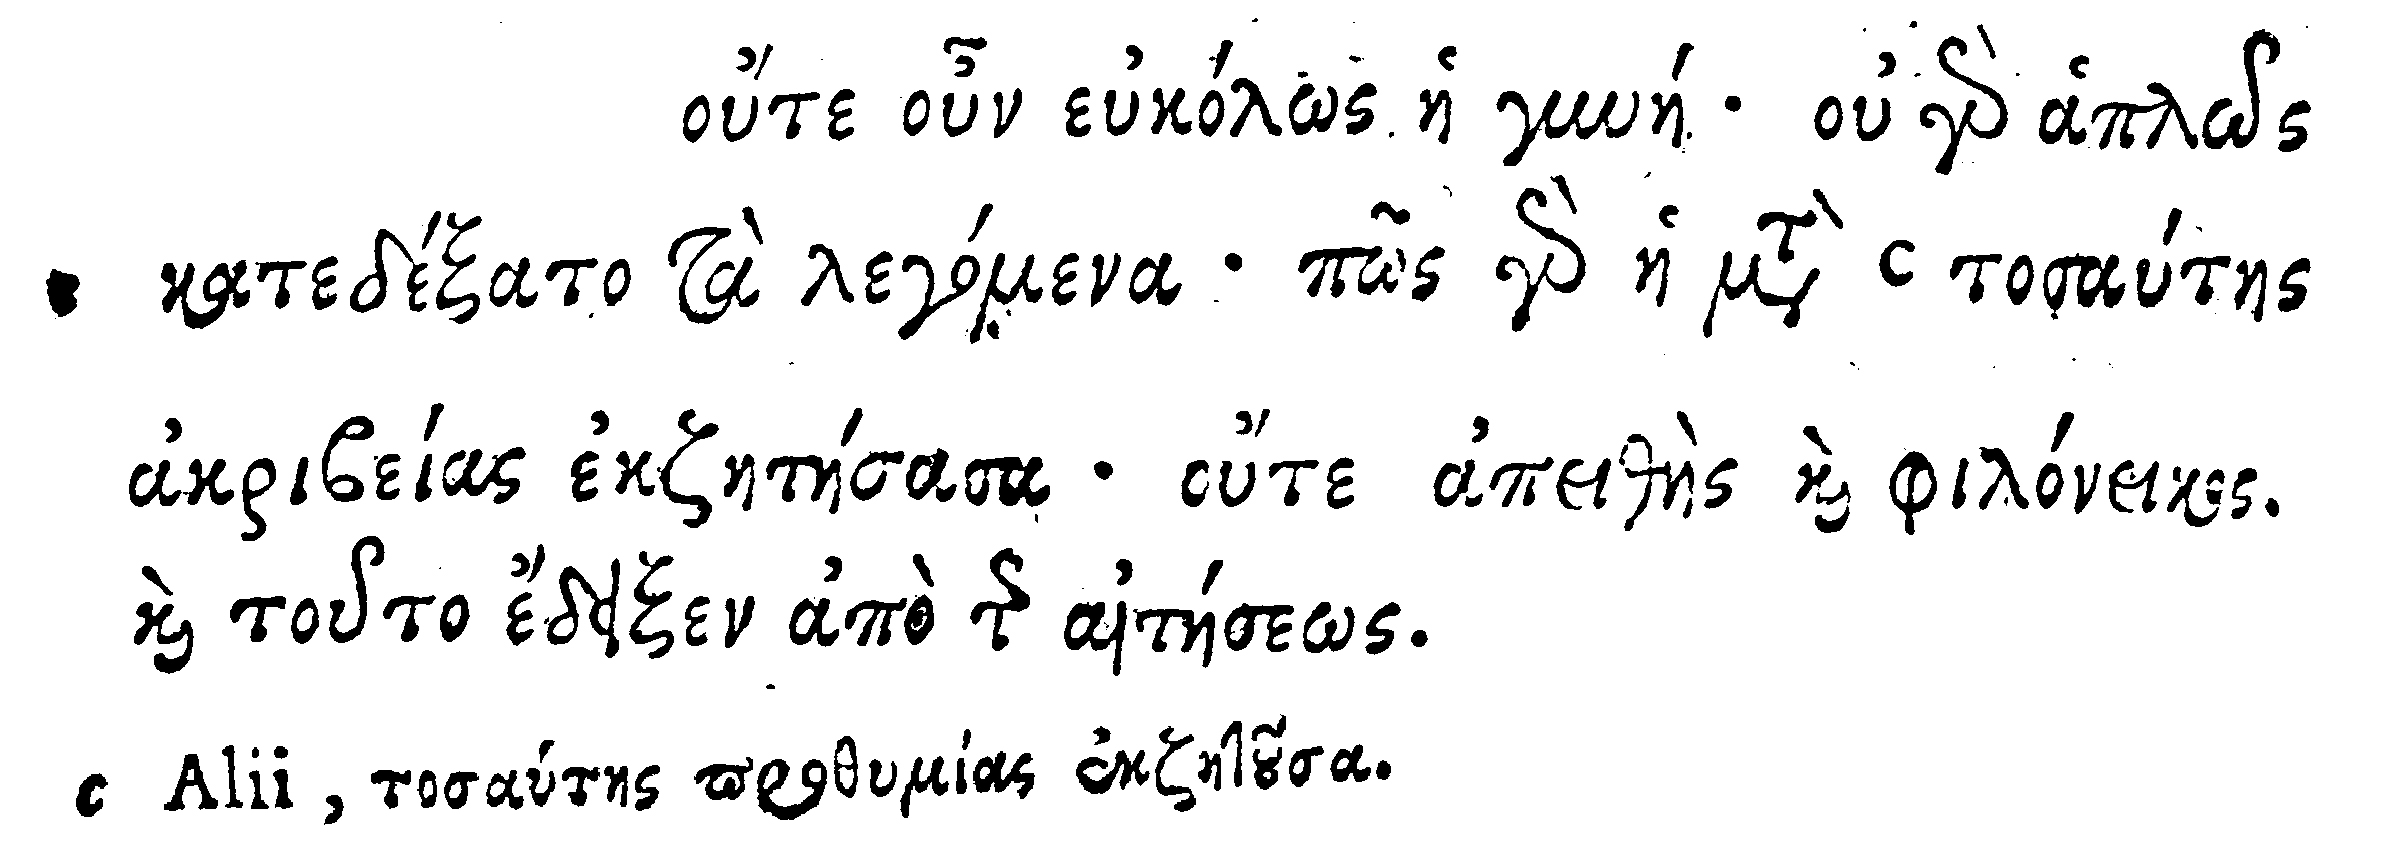 οὔτε οὖν εὐκόλως ἡ γυνή · οὐ γὰρ ἁπλῶς
κατεδέξατο τὰ λεγόμενα · πῶς γὰρ ἡ μετὰ c τοσαύτης
ἀκριβείας ἐκζητήσασα · οὔτε ἀπειθὴς καὶ φιλόνεικος.
καὶ τοῦτο ἔδειξεν ἀπὸ τῆς αἰτήσεως.
c Alii, τοσαύτης προθυμίας ἐκζητοῦσα.